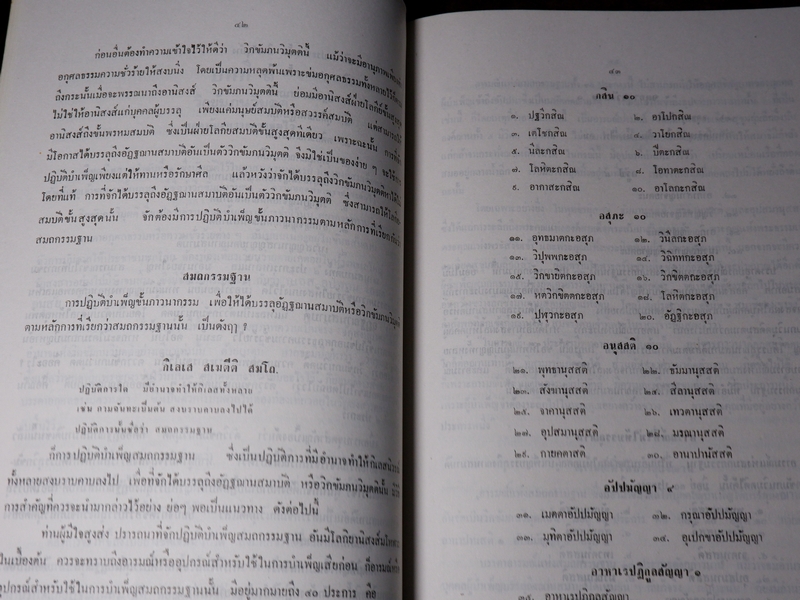 ๔๒
ก่อนอื่นต้องทำความเข้าใจไว้ให้ดีว่า วิกขัมภนวิมุตตินี้ แม้ว่าจะมีอานุภาพ
อกุศลธรรมความชั่วร้ายให้สงบนิ่ง โดยเป็นความหลุดพ้นเพราะข่มอกุศลธรรมทั้งหลายไว้
ถึงกระนั้นเมื่อจะพรรณนาถึงอานิสงส์ วิกขัมภนวิมุตตินี้ ย่อมมีอานิสงส์ฝ่ายโลกีย์
ไม่ใช่ให้อานิสงส์แก่บุคคลผู้บรรลุ เพียงแค่มนุษย์สมบัติหรือสวรรค์สมบัติ แต่สามารถ
อานิสงส์ถึงขั้นพรหมสมบัติ ซึ่งเป็นฝ่ายโลกียสมบัติขั้นสูงสุดทีเดียว เพราะฉะนั้น การที่
มีโอกาสได้บรรลุถึงอัฏฐฌานสมาบัติอันเป็นตัววิกขัมภนวิมุตติ จึงมิใช่เป็นของง่าย ๆ จะ
ปฏิบัติบำเพ็ญเพียงแต่ให้ทานหรือรักษาศีล แล้วหวังว่าจักได้บรรลุถึงวิกขัมภนวิมุตติ
โดยที่แท้ การที่จักได้บรรลุถึงอัฏฐฌานสมาบัติอันเป็นตัววิกขัมภนวิมุตติ ซึ่งสามารถให้
สมบัติขั้นสูงสุดนั้น จักต้องมีการปฏิบัติบำเพ็ญขั้นภาวนากรรมตามหลักการที่เรียก
สมถกรรมฐาน
สมถกรรมฐาน
การปฏิบัติบำเพ็ญขั้นภาวนากรรม เพื่อให้ได้บรรลุอัฏฐฌานสมาบัติหรือวิกขัมภนวิมุตติ
ตามหลักการที่เรียกว่าสมถกรรมฐานนั้น เป็นดังฤๅ ?
กิเลเส สเมตีติ สมโถ.
ปฏิบัติการใด มีอำนาจทำให้กิเลสทั้งหลาย
เช่น กามฉันทะเป็นต้น สงบราบคาบลงไปได้
ปฏิบัติการนั้นชื่อว่า สมถกรรมฐาน
ก็การปฏิบัติบำเพ็ญสมถกรรมฐาน ซึ่งเป็นปฏิบัติการที่มีอำนาจทำให้กิเลส
ทั้งหลายสงบราบคาบลงไป เพื่อที่จักได้บรรลุถึงอัฏฐฌานสมาบัติ หรือวิกขัมภนวิมุตตินั้น
การสำคัญที่ควรจะนำมากล่าวไว้อย่าง ย่อๆ พอเป็นแนวทาง ดังต่อไปนี้
ท่านผู้มีใจสูงส่ง ปรารถนาที่จักปฏิบัติบำเพ็ญสมถกรรมฐาน อันมีโลกิยานิสงส์
เป็นเบื้องต้น ควรจะทราบถึงอารมณ์หรืออุปกรณ์สำหรับใช้ในการบำเพ็ญเสียก่อน ก็อารมณ์
อุปกรณ์สำหรับใช้ในการบำเพ็ญสมถกรรมฐานนั้น มีอยู่มากมายถึง ๔๐ ประการ คือ
๔๓
กสิณ ๑๐
๑. ปฐวีกสิณ ๒. อาโปกสิณ
๓. เตโชกสิณ ๔. วาโยกสิณ
๕. นีละกสิณ ๖. ปีตะกสิณ
๗. โลหิตะกสิณ ๘. โอทาตะกสิณ
๙. อากาสะกสิณ ๑๐. อาโลกะกสิณ
อสุภะ ๑๐
๑๑. อุทธมาตกะอสุภ ๑๒. วินีลกะอสุภ
๑๓. วิปุพพกะอสุภ ๑๔. วิฉิททกะอสุภ
๑๕. วิกขายิตกะอสุภ ๑๖. วิกขิตตกะอสุภ
๑๗. หตวิกขิตตกะอสุภ ๑๘. โลหิตกะอสุภ
๑๙. ปุฬุวกะอสุภ ๒๐. อัฏฐิกะอสุภ
อนุสสติ ๑๐
๒๑. พุทธานุสสติ ๒๒. ธัมมานุสสติ
๒๓. สังฆานุสสติ ๒๔. สีลานุสสติ
๒๕. จาคานุสสติ ๒๖. เทวตานุสสติ
๒๗. อุปสมานุสสติ ๒๘. มรณานุสสติ
๒๙. กายคตาสติ ๓๐. อานาปานัสสติ
อัปปมัญญา ๔
๓๑. เมตตาอัปปมัญญา ๓๒. กรุณาอัปปมัญญา
๓๓. มุทิตาอัปปมัญญา ๓๔. อุเปกขาอัปปมัญญา
อาหาเรปฏิกูลสัญญา ๑
๓๕. อาหาเรปฏิกูลสัญญา